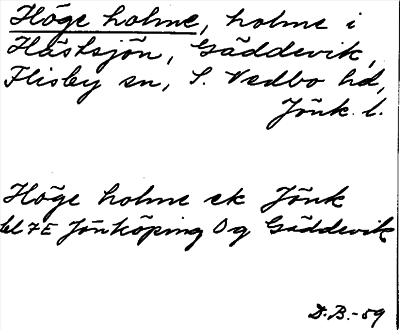 Höge holme, holme i
Hästsjön, Gäddevik,
Flisby sn, S. Vedbo hd,
Jönk. l.
Höge holme ek Jönk
bl 7E Jönköping Og Gäddevik
D.B.-59